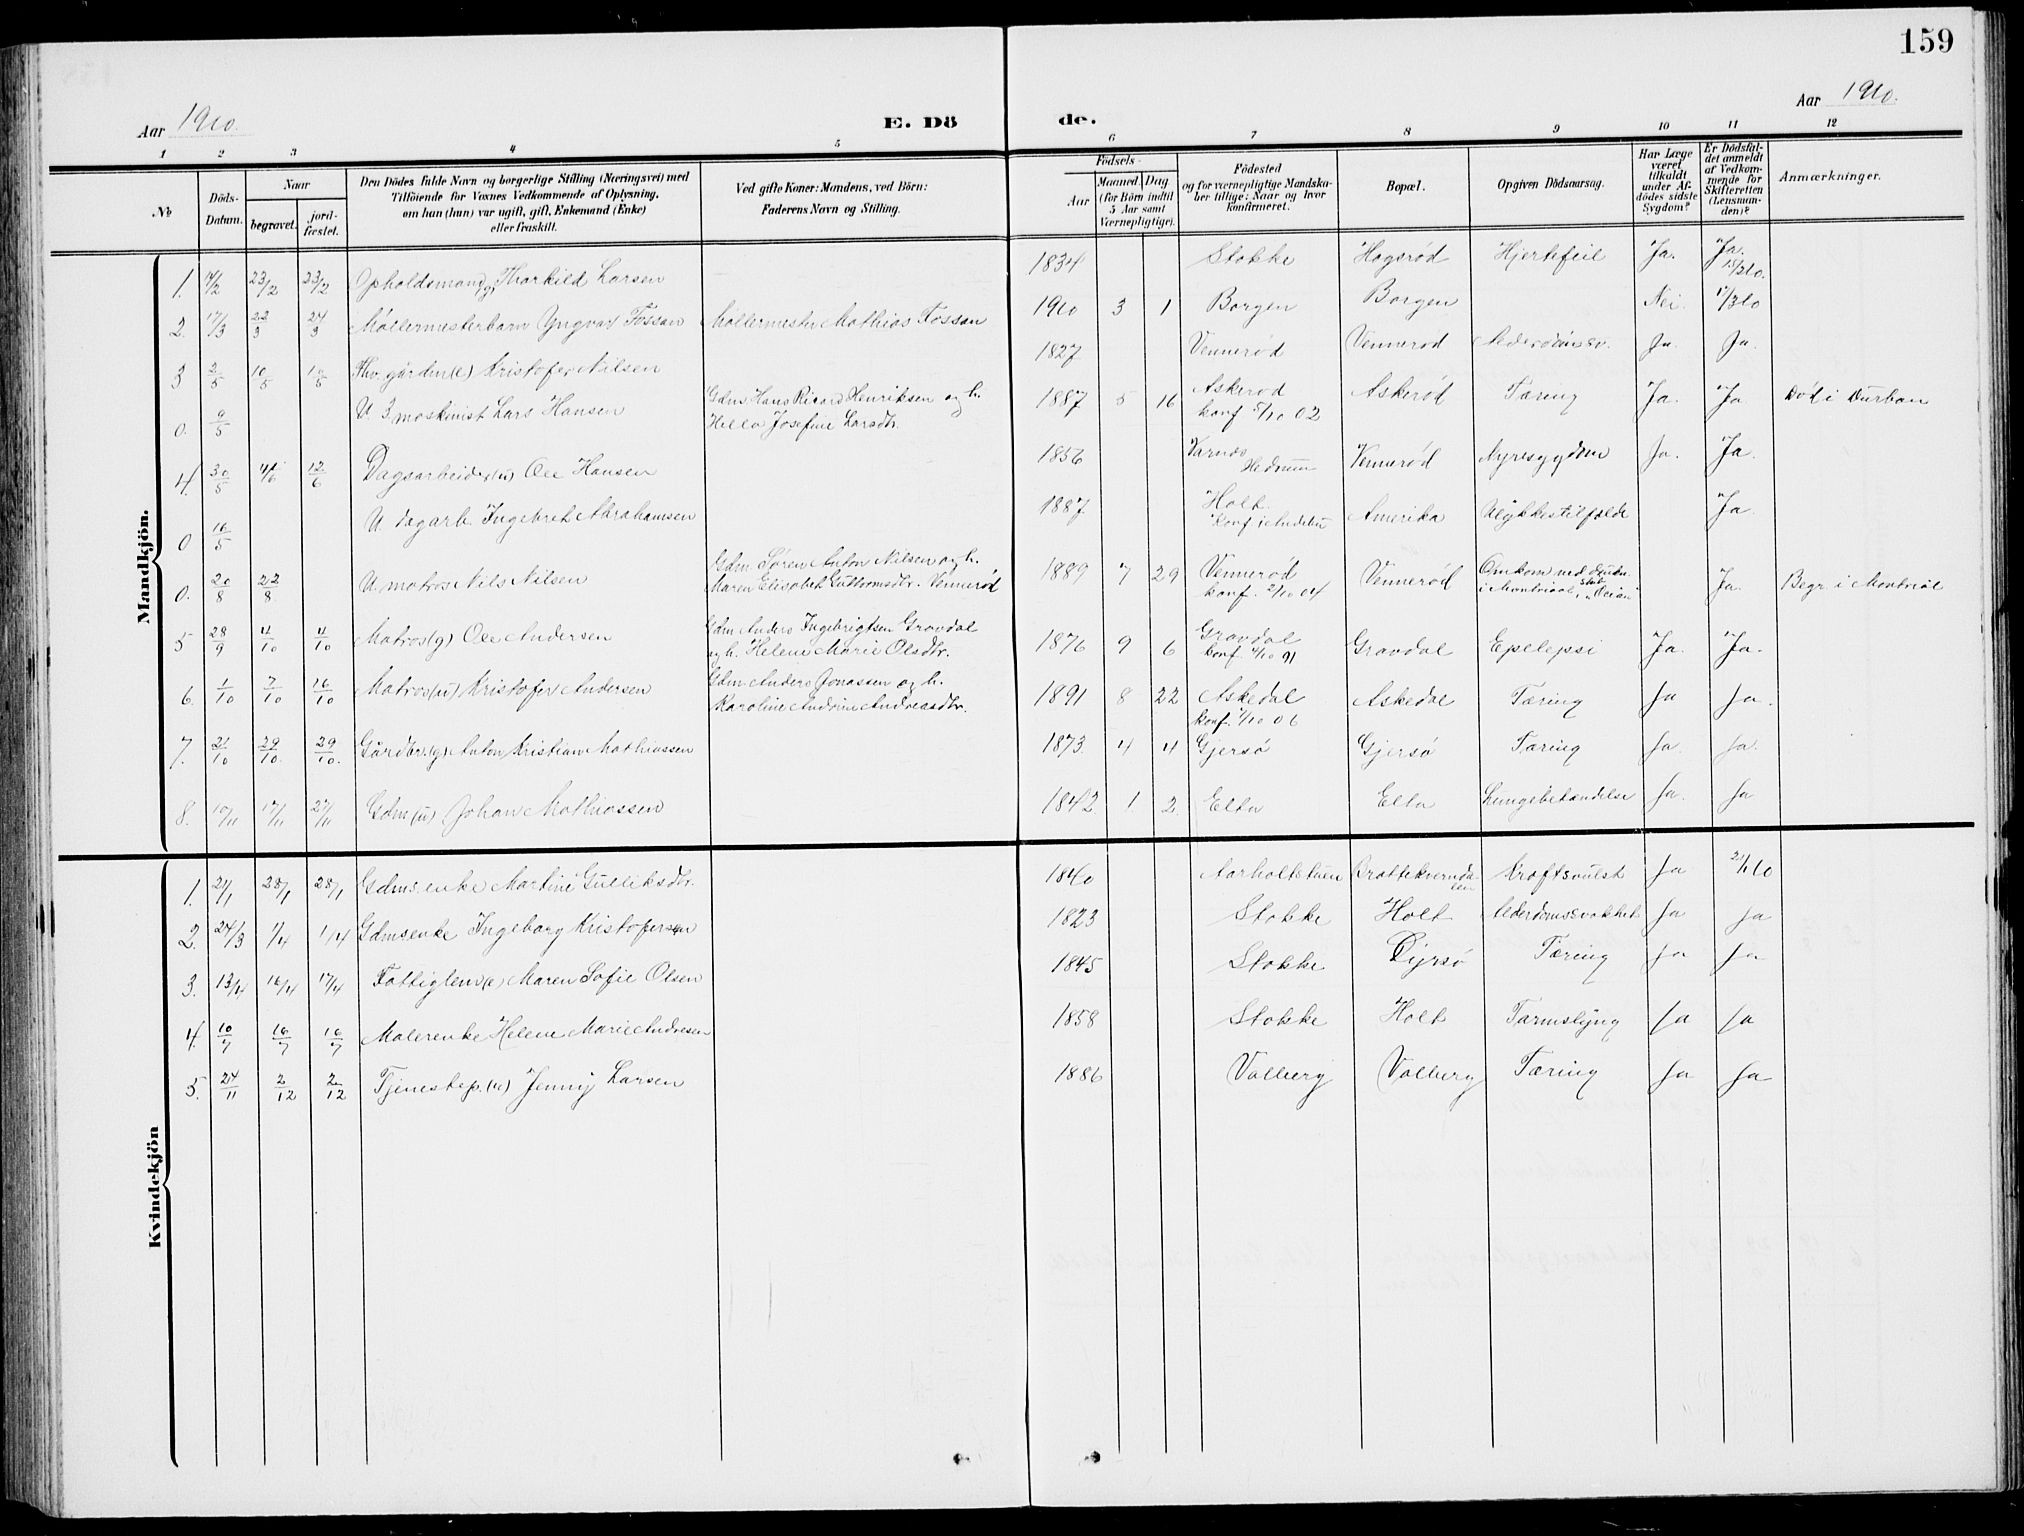 159
Aar 1910.
E. Dö
de.
Aar 1910.
1 2 3 4 5 6 7 8 9 10 11 12
№
Döds-
Datum.
Naar
begravet.
jord-
fæstet.
Den Dödes fulde Navn og borgerlige Stilling (Næringsvei) med
Tilföiende for Voxnes Vedkommende af Oplysning,
om han (hun) var ugift, gift, Enkemand (Enke)
eller fraskilt.
Ved gifte Koner: Mandens, ved Börn:
Faderens Navn og Stilling.
Födsels-
Aar
Maaned. Dag
(for Börn indtil
5 Aar samt
Værnepligtige).
Födested
og for værnepligtige Mandska-
ber tillige: Naar og hvor
konfirmeret.
Bopæl.
Opgiven Dödsaarsag.
Har Læge
været
tilkaldt
under Af-
dödes sidste
Sygdom?
Er Dödsfal-
det anmeldt
af Vedkom-
mende for
Skifteretten
(Lensman-
den)?
Anmærkninger.
Mandkjön.
1. 14/2 23/2 23/2 Opholdsmand g Thorkild Larsen 1834 Stokke Hogsrød Hjertefeil Ja. Ja. 15/2 10.
2. 17/3 22/3 24/3 Møllermesterbarn Yngvar Fossan Møllermester Mathias Fossan 1910 3 1 Borgen Borgen Nei. 17/3 10
3 2/5 10/5 10/5 Fhv. gårdm (e) Kristofer Nilsen 1827 Vennerød Vennerød Alderdomssv. Ja. Ja.
0. 9/5 U. 3 maskinist Lars Hansen Gdm Hans Ricard Henriksen og h.
Hella Josefine Larsdtr. 1887 5 16 Askerød
konf 5/10 02 Askerød Tæring Ja. Ja Død i Durban
4. 30/5 4/6 12/6 Dagsarbeider (u) Ole Hansen 1856 Varnes
Hedrum Vennerød Nyresygdom Ja. Ja.
0 16/5 U. dagarb. Ingebret Abrahamsen 1887 Holt
konf i Andebu Amerika Ulykkestilfælde Ja.
0. 20/8 22/8. U. matros Nils Nilsen Gdm. Søren Anton Nilsen og h.
Maren Elisabet Guttormsdtr. Vennerød 1889 7 29 Vennerød
konf. 2/10 04 Vennerød Omkom ved drukn.
i Montreal, skib "Ocian" Ja. Begr. i Montreal
5 28/9 4/10 4/10 Matros (g) Ole Andersen Gdm Anders Ingebrigtsen Gravdal
og h. Helene Marie Olsdtr. 1876 9 6 Gravdal
konf. 4/10 91 Gravdal Epelepsi Ja. Ja.
6. 1/10 7/10 16/10 Matros (u) Kristofer Andersen Gdm Anders Jonassen og h.
Karoline Andrine Andreasdtr. 1891 8 22 Askedal
konf. 7/10 06 Askedal Tæring Ja Ja.
7. 21/10 29/10. 29/10. Gårdbr. (g) Anton Kristian Mathiassen 1873. 4 4 Gjersø Gjersø Tæring Ja. Ja.
8. 10/11 17/11 27/11 Gdm (u) Johan Mathiassen 1842 1 2 Elta Elta Lungebetændelse Ja. Ja
Kvindekjön
1. 21/1 28/1 28/1 Gdms. enke Martine Gulliksdtr. 1840 Aarholtstuen Brattekvernda-
len Kræftsvulst Ja 21/1 10
2. 24/3 1/4 1/4 Gdmsenke Ingeborg Kristofersen 1823 Stokke Holt Alderdomssvakhet Ja Ja
3. 13/4 16/4 17/4 Fattiglem (e) Maren Sofie Olsen 1845 Stokke Dyrsø Tæring Ja Ja
4. 10/7 16/7 16/7 Malerenke Helene Marie Andresen 1858 Stokke Holt Tarmslyng Ja Ja
5. 24/11 2/12 2/12 Tjenestep. (u) Jenny Larsen 1886 Valberg Valberg Tæring Ja Ja